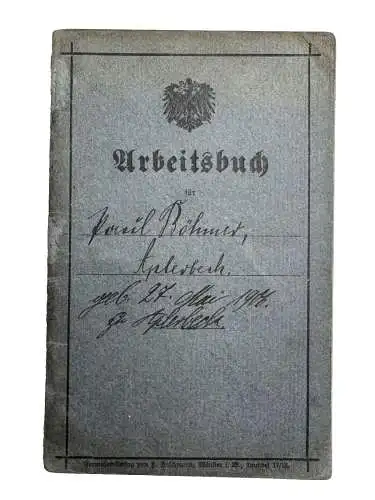 Arbeitsbuch
für
Paul Böhmer,
Aplerbeck.
geb. 27. Mai
z. Aplerbeck.
Münster i. W.,